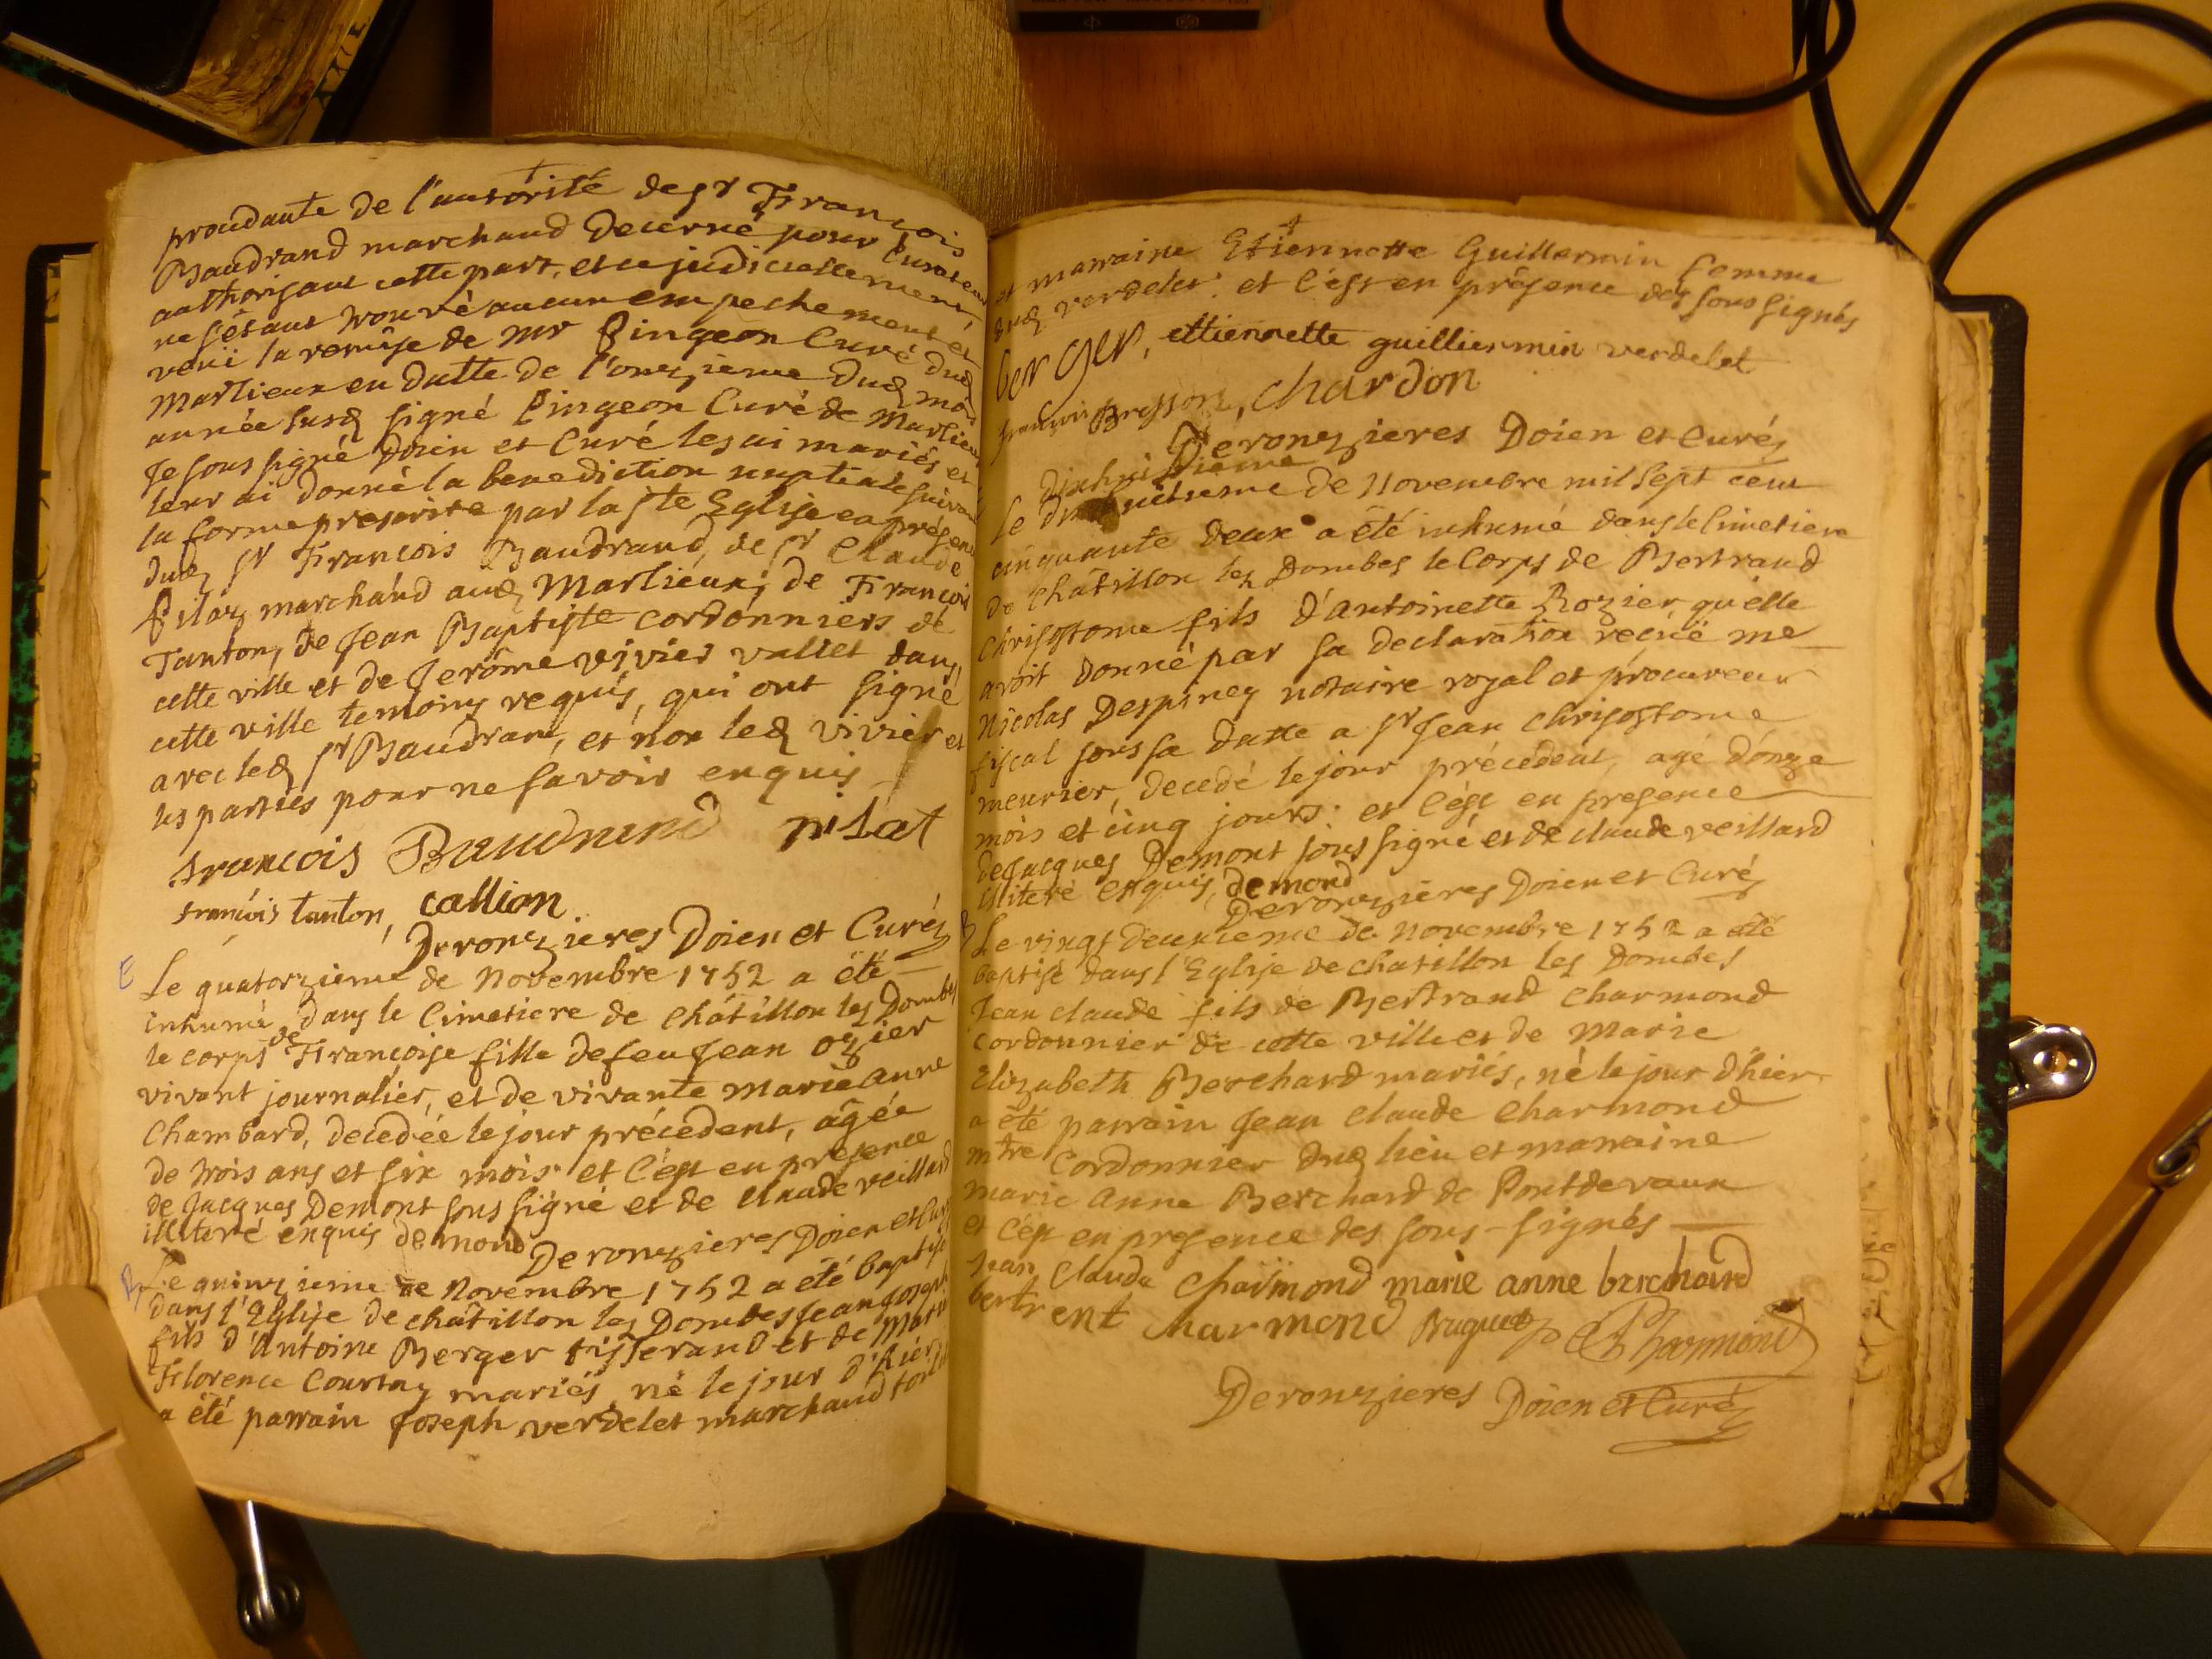 proudante de l'autorité de sr François
Baudrand marchand decerné pour Curateur
authorisant cette part, et ce judiciellement,
ne s'étant trouvé aucun empechement et
veüi la remise de Mr Pingeon Curé dud
Marlieux en datte de l'onzieme dud mois
année susd signé Pingeon Curé de Marlieux
Je sous signé Doien et Curé les ai mariés et
leur ai donné la benediction nuptiale suivant
la forme prescrite par la ste Eglise en présence
dud sr François Baudrand, de sr Claude
Pilaz marchand aud Marlieux, de François
Tanton, de Jean Baptiste cordonniers de
cette ville et de Jerôme vivier vallet dans
cette ville temoins requis, qui ont signé
avec led sr Baudran, et non led vivier et
les parties pour ne savoir enquis
francois Baudrand pilat
françois tanton, callion
Deronzieres Doien et Curé
E Le quatorzieme de Novembre 1752 a été
inhumé dans le Cimetiere de Châtillon les Dombes
le corps de Françoise fille de feu Jean ozier
vivant journalier, et de vivante Marie Anne
Chambard, decedée le jour précedent, âgée
de trois ans et six mois et c'est en presence
de Jacques Demont sous signé et de Claude veillard
illiteré enquis demond
Deronzieres Doien et Curé
B Le quinzieme de Novembre 1752 a été baptisé
dans l'Eglise de châtillon les Dombes Jean Joseph
fils d'Antoine Berger tisserand et de Marie
Florence Courtay mariés, né le jour d'hier
a été parrain Joseph verdelet marchand
et marraine Etiennette Guillermin femme
dud verdelet et c'est en présence des sous signés
berger, ettiennette guilliermin verdelet
françois Bresson, Chardon
Deronzieres Doien et Curé
dixhuitieme
Le de Novembre mil sept cent
cinquante deux a été inhumé dans le Cimetiere
de Châtillon les Dombes le Corps de Bertrand
Chrisostome fils d'Antoinette Rozier qu'elle
avoit donné par sa declaration recüe me
Nicolas Despiney notaire royal et procureur
fiscal sous sa datte a sr Jean Chrisostome
meurier, decedé le jour précédent, agé d'onze
mois et cinq jours et c'est en presence
de Jacques Demont sous signé et de Claude veillard
illiteré enquis, demond
Deronzieres Doien et Curé
B Le vingt deuxieme de Novembre 1752 a été
baptisé dans l'Eglise de chatillon les Dombes
Jean claude fils de Bertrand Charmond
cordonnier de cette ville et de Marie
Elizabeth Berchard mariés, né le jour d'hier
a été parrain Jean Claude Charmond
mtre Cordonnier dud lieu et marraine
marie Anne Berchard de Pontdevaux
et c'est en presence des sous-signés
Jean Claude Charmond marie anne berchard
bertrent charmond Buguet Charmond
Deronzieres Doien et Curé